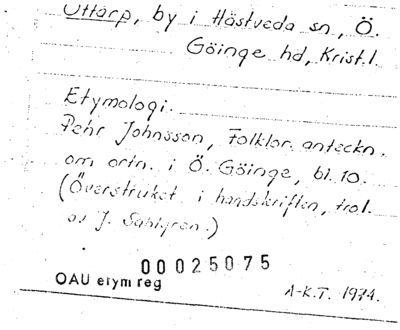 Uttarp, by i Hästveda sn, Ö.
Göinge hd, Krist.l.
Etymologi.
Pehr Johnsson, Folklor. anteckn.
om ortn. i Ö. Göinge, bl. 10.
(Överstruket i handskriften, trol.
av J. Sahlgren.)
00025075
OAU etym reg
A-K.T. 1974.